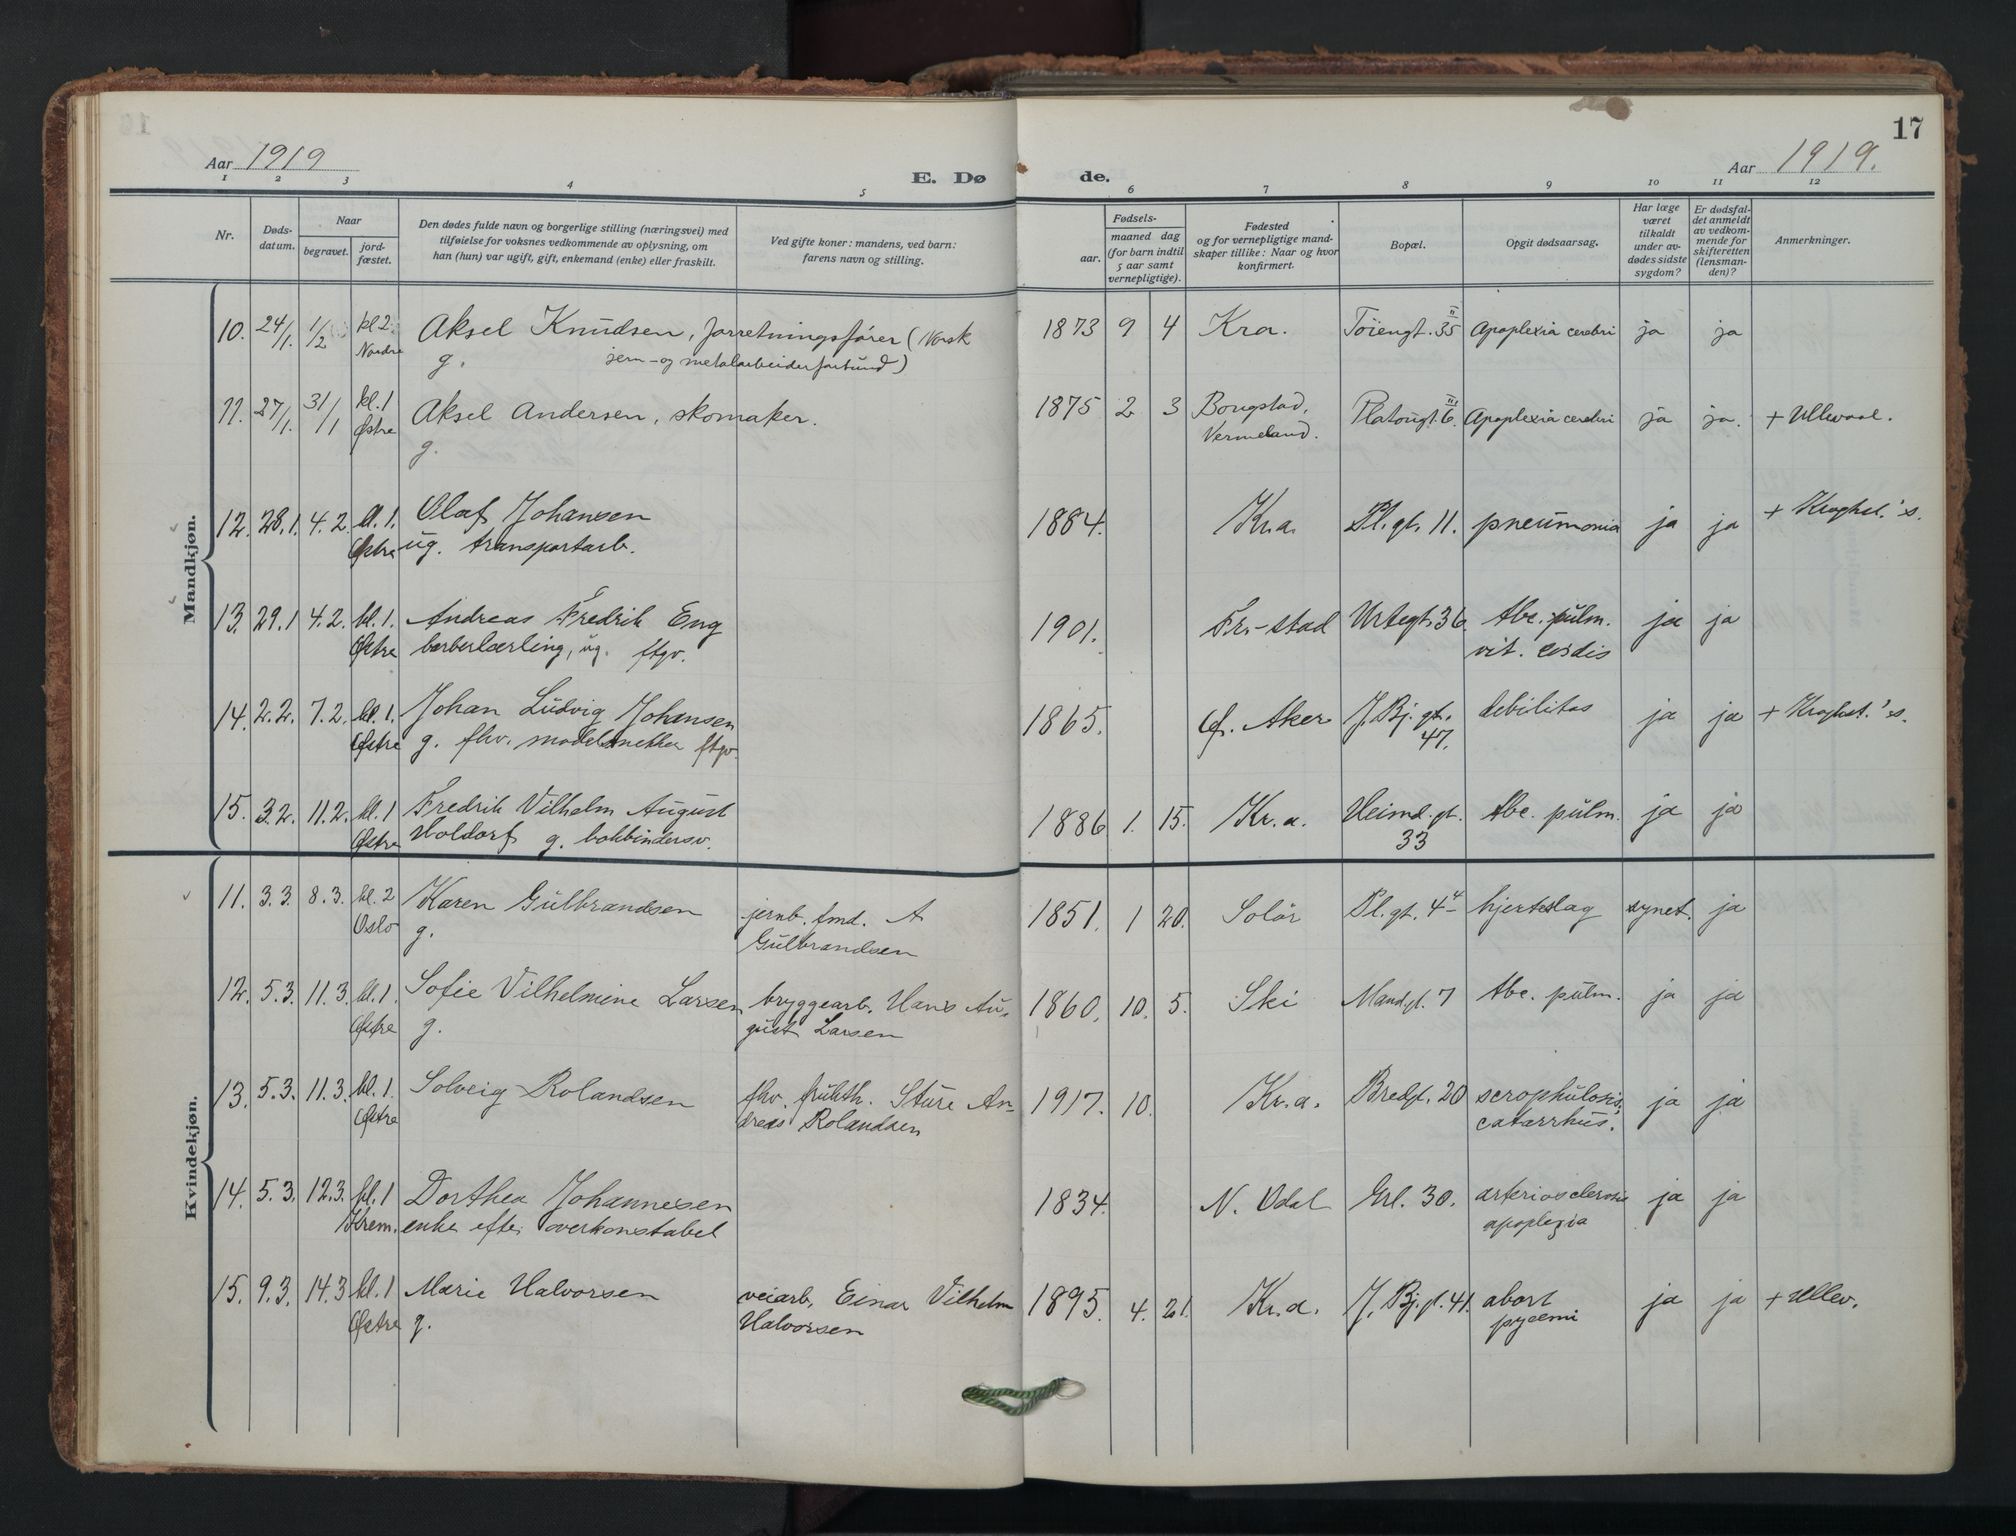 17
Aar 1919
E. Dø
de.
Aar 1919.
1 2 3 4 5 6 7 8 9 10 11 12
Nr.
Døds-
datum.
Naar
begravet.
jord-
fæstet.
Den dødes fulde navn og borgerlige stilling (næringsvei) med
tilføielse for voksnes vedkommende av oplysning, om
han (hun) var ugift, gift, enkemand (enke) eller fraskilt.
Ved gifte koner: mandens, ved barn:
farens navn og stilling.
Fødsels-
aar.
maaned dag
(for barn indtil
5 aar samt
vernepligtige).
Fødested
og for vernepligtige mand-
skaper tillike: Naar og hvor
konfirmert.
Bopæl.
Opgit dødsaarsag.
Har læge
været
tilkaldt
under av-
dødes sidste
sygdom?
Er dødsfal-
det anmeldt
av vedkom-
mende for
skifteretten
(lensman-
den)?
Anmerkninger.
Mandkjøn.
10. 24/1. 1/2 kl 2. Aksel Knudsen, forretningsfører (Norsk 1873 9 4 Kra. Töiengt. 35 II Apoplexia cerebri ja ja
Nordre g. jern- og metalarbeiderforbund)
11. 27/1. 31/1 kl. 1 Aksel Andersen, skomaker. 1875 2 3 Bongstad, Platougt. 6. III Apoplexia cerebri ja ja. + Ullevaal.
Østre g. Vermeland.
12. 28.1. 4.2. kl. 1. Olaf Johansen 1884. Kr.a. Pl.gt. 11. pneumonia ja ja + Kroghst.'s.
Østre ug. transportarb.
13. 29.1 4.2. kl. 1. Andreas Fredrik Eng 1901. Fr-stad Urtegt. 36. tbc. pulm. ja ja
Østre barberlærling, ug. ftgv. vit. cordis
14. 2.2. 7.2. kl. 1. Johan Ludvig Johansen 1865. Ø. Aker J. Bj. gt. debilitas ja ja + Kroghst.'s.
Østre g. fhv. modelsnekker ftgv. 47.
15. 3.2. 11.2. kl. 1 Fredrik Vilhelm August 1886 1. 15. Kr.a. Heimd.gt. tbc. pulm. ja ja
Østre Holdorf g. bokbindersv. 33
Kvindekjøn.
11. 3.3. 8.3. kl. 2 Karen Gulbrandsen jernb. fmd. A 1851. 1 20. Solör Pl.gt. 4 4 hjerteslag synet. ja
Oslo g. Gulbrandsen
12. 5.3. 11.3. kl. 1. Sofie Vilhelmine Larsen bryggearb. Hans Au- 1860. 10. 5. Ski Mand.gt. 7 tbc. pulm. ja ja
Østre g. gust Larsen
13. 5.3. 11.3. kl. 1. Solveig Rolandsen fhv. frukth. Sture An- 1917. 10. Kr.a. Bredgt. 20 scrophulosis, ja ja
Østre dreas Rolandsen catarrhus.
14. 5.3. 12.3. kl. 1 Dorthea Johannesen 1834. N. Odal Grl. 30. arteriosclerosis ja ja
Krem. enke efter overkonstabel apoplexia
15. 9.3. 14.3 kl. 1 Marie Halvorsen veiarb. Einar Vilhelm 1895. 4. 21. Kr.a. J. Bj.gt. 41. abort ja ja + Ullev.
Østre g. Halvorsen pyæmi